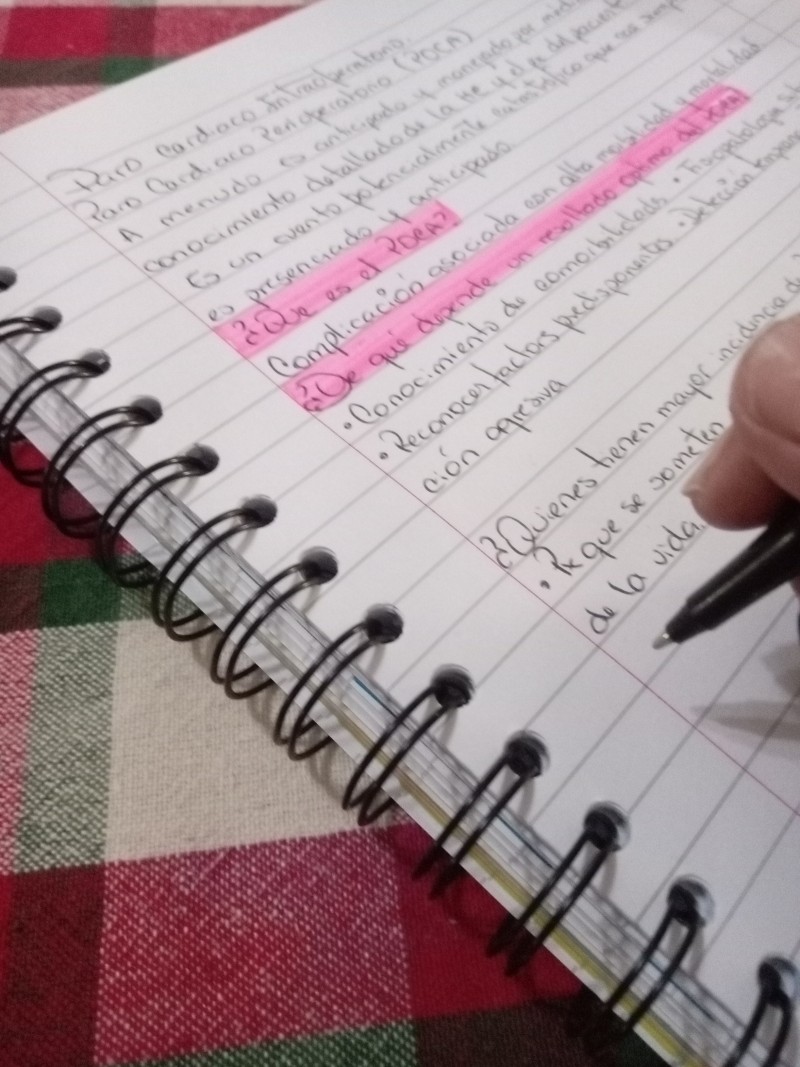 Paro Cardiaco Intraoperatorio.
Paro Cardiaco Perioperatorio (POCA)
A menudo es anticipado y manejado por
conocimiento detallado de la HC y el px del paciente
Es un evento potencialmente catastrófico que casi siempre
es presenciado y anticipado.
¿Qué es el POCA?
Complicación asociada con alta morbilidad y mortalidad
¿De qué depende un resultado optimo del POCA?
•Conocimiento de comorbilidades • Fisiopatología
•Reconocer factores predisponentes •Detección
ción agresiva
¿Quienes tienen mayor incidencia de
•Px que se someten
de la vida.